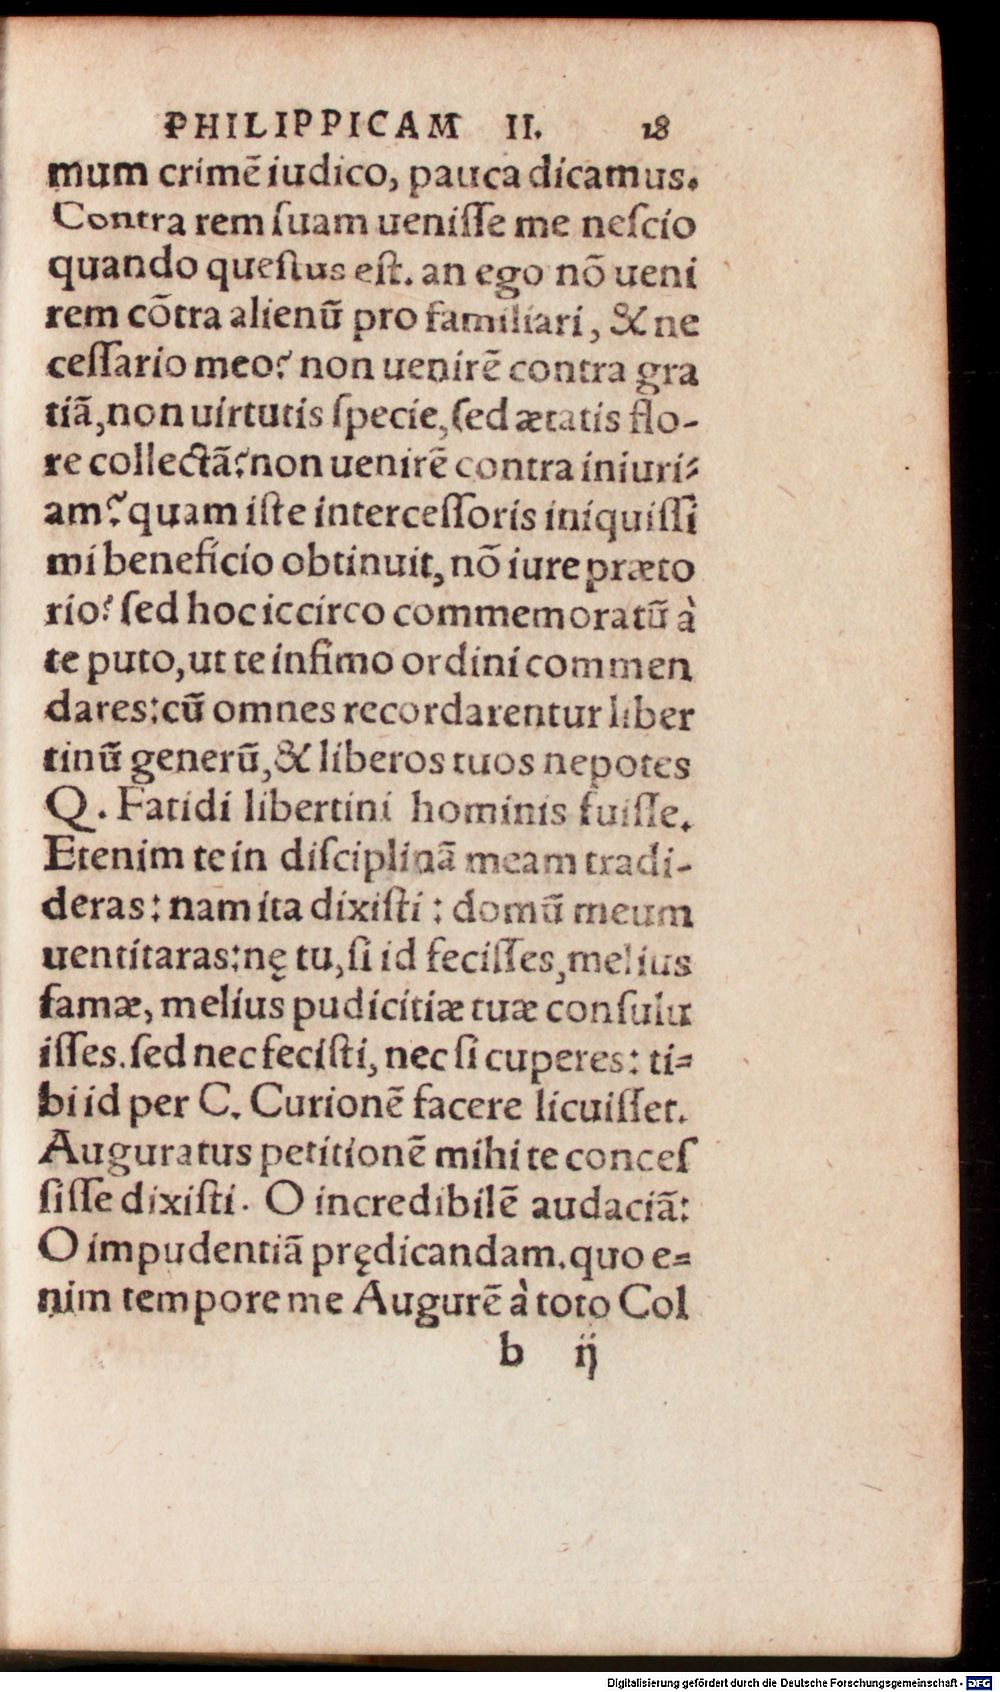 PHILIPPICAM II. 18
mum crimē iudico, pauca dicamus.
Contra rem ſuam ueniſſe me neſcio
quando queſtus eſt. an ego nō ueni
rem cōtra alienū pro familiari, & ne
ceſſario meo? non uenirē contra gra
tiā, non uirtutis ſpecie, ſed ætatis flo-
re collectā? non uenirē contra iniuri-
am? quam iſte interceſſoris iniquiſſi
mi beneficio obtinuit, nō iure præto
rio? ſed hoc iccirco commemoratū à
te puto, ut te infimo ordini commen
dares: cū omnes recordarentur liber
tinū generū, & liberos tuos nepotes
Q. Fatidi libertini hominis fuiſſe.
Etenim te in diſciplinā meam tradi-
deras: nam ita dixiſti: domū meum
uentitaras: nę tu, ſi id feciſſes, melius
famæ, melius pudicitiæ tuæ conſulu
iſſes. ſed nec feciſti, nec ſi cuperes: ti-
bi id per C. Curionē facere licuiſſet.
Auguratus petitionē mihi te conceſ
ſiſſe dixiſti. O incredibilē audaciā:
O impudentiā prędicandam. quo e-
nim tempore me Augurē à toto Col
b ij
Digitalisierung gefördert durch die Deutsche Forschungsgemeinschaft - DFG